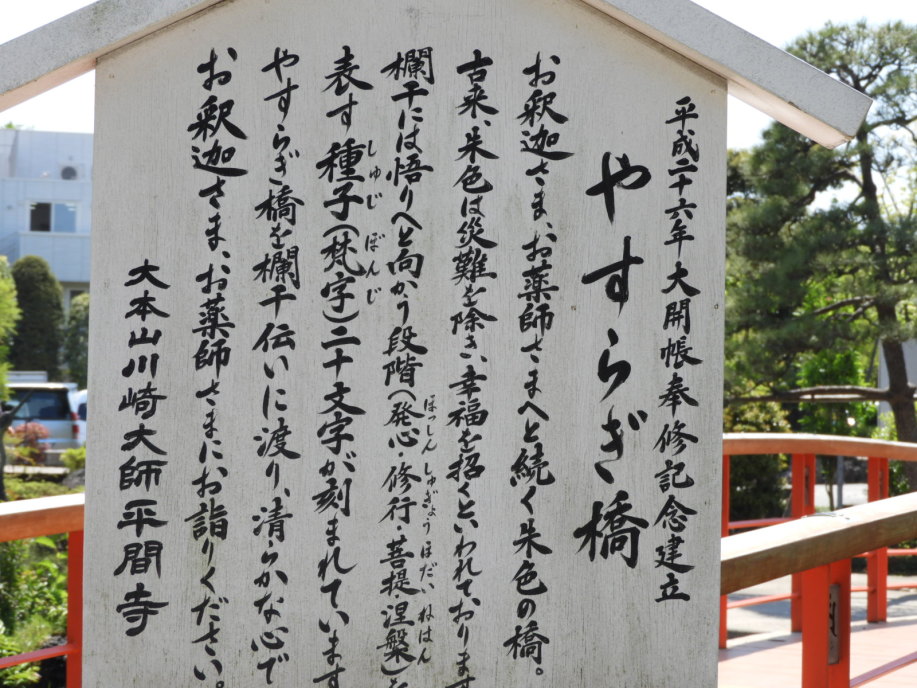 平成二十六年大開帳奉修記念建立
やすらぎ橋
お釈迦さま、お薬師さまへと続く朱色の橋。
古来、朱色は災難を除き、幸福を招くといわれております
ほっしん しゅぎょう ぼだい ねはん
欄干には悟りへと向かう段階(発心・修行・菩提・涅槃)を
しゅじ ぼんじ
表す種子(梵字)二十文字が刻まれています
やすらぎ橋を欄干伝いに渡り、清らかな心で
お釈迦さま、お薬師さまにお詣りください。
大本山川崎大師平間寺